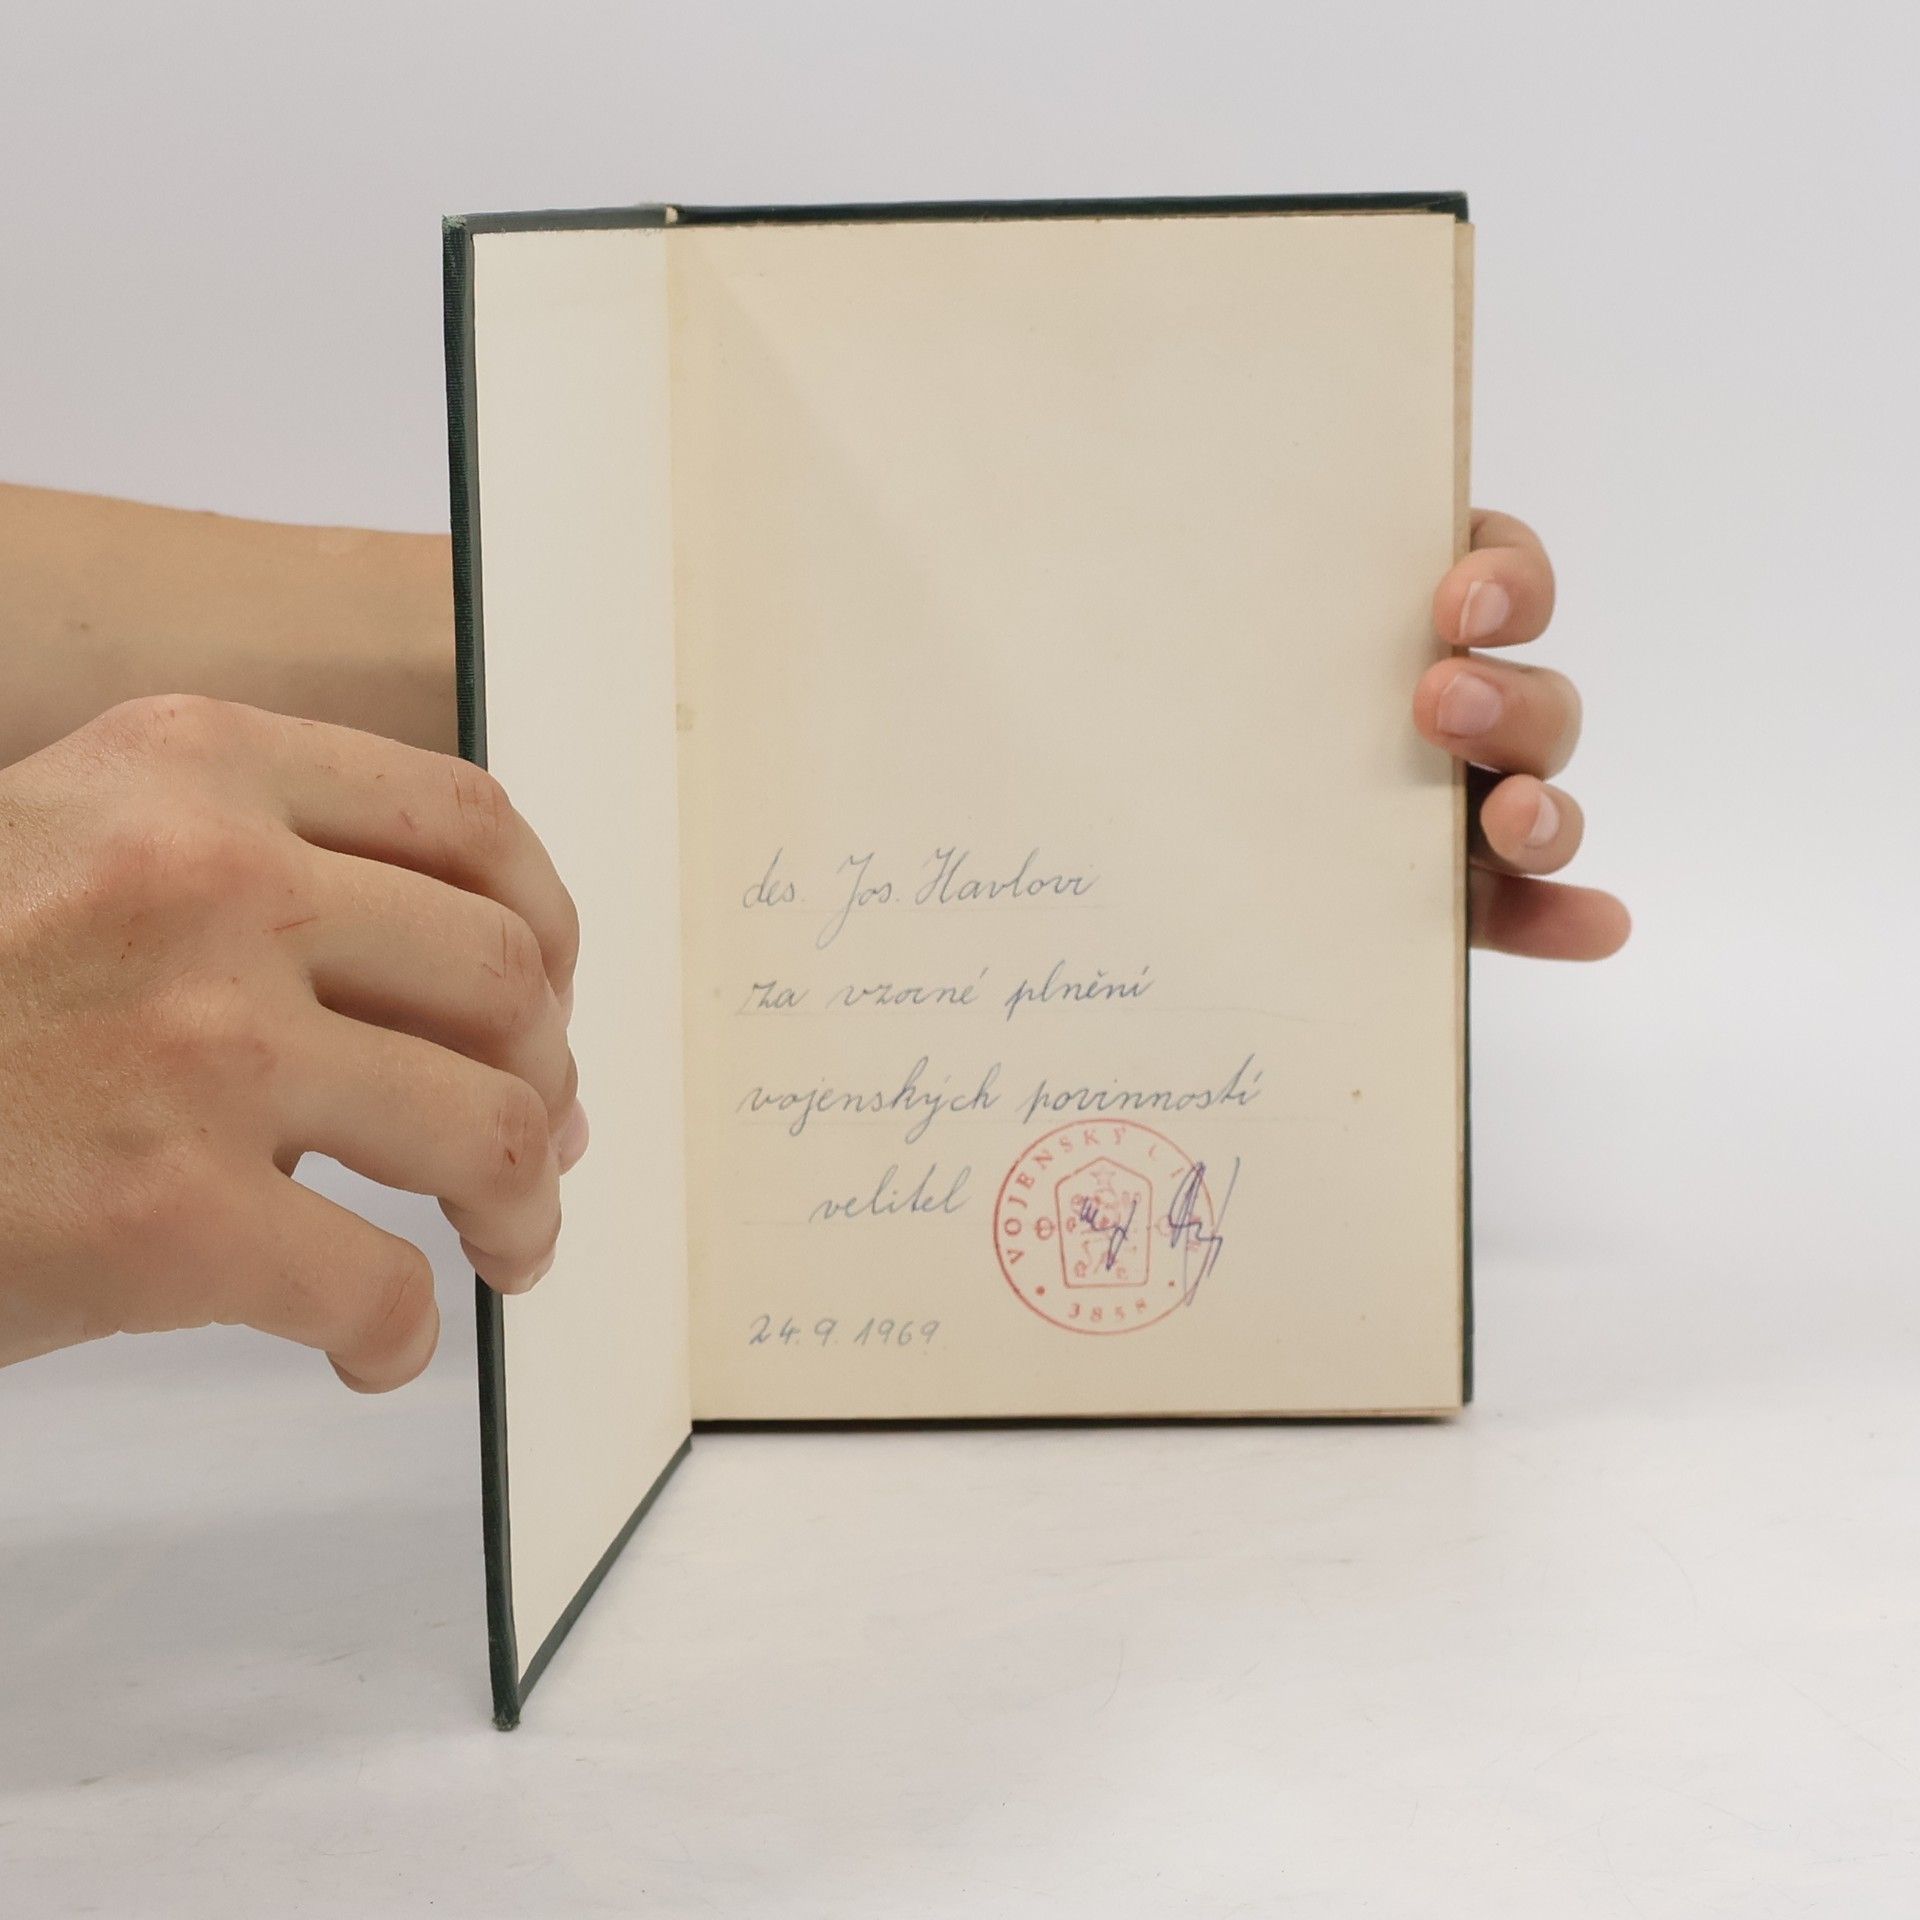 des. Jos. Havlovi
za vzorné plnění
vojenských povinností
velitel
VOJENSKÝ ÚTVAR
3858
24. 9. 1969